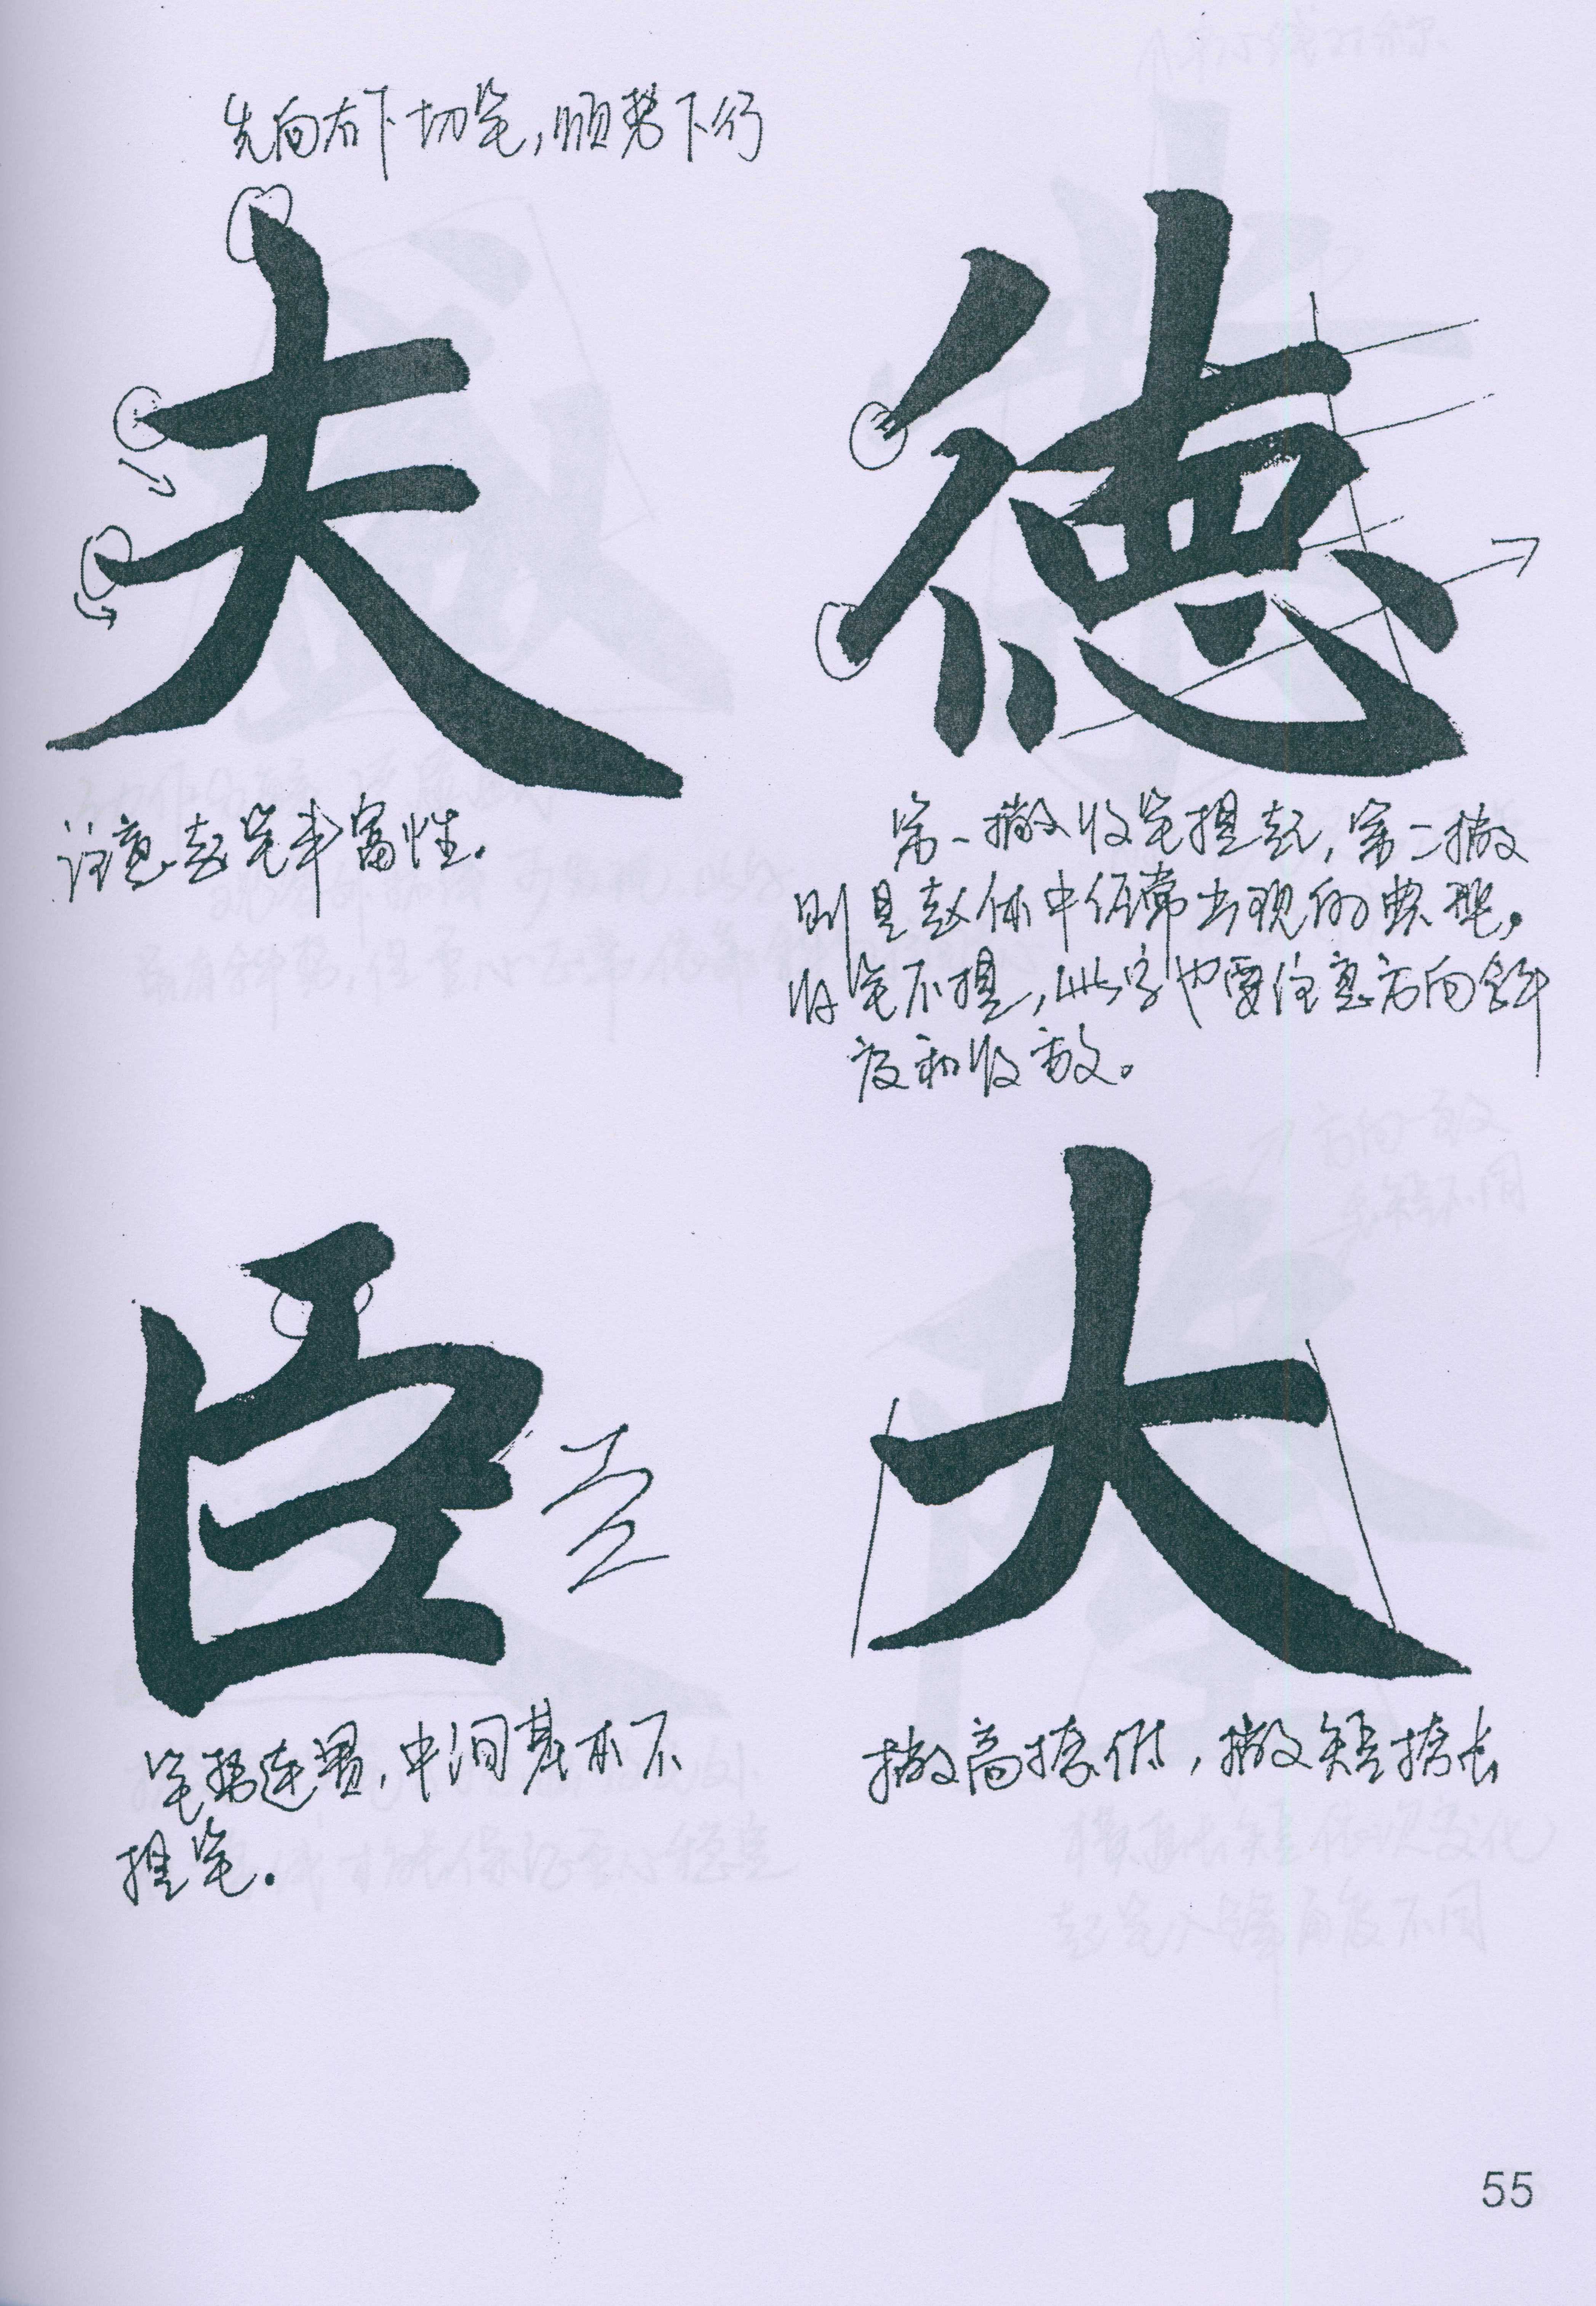 先向右下切笔，顺势下行
夫
注意起笔丰富性。
德
第一撇收笔提起，第二撇
则是赵体中经常出现的典型，
收笔不提，此字也要注意方向斜
度和收放。
臣
笔势连贯，中间基本不
提笔。
大
撇高捺低，撇短捺长
55